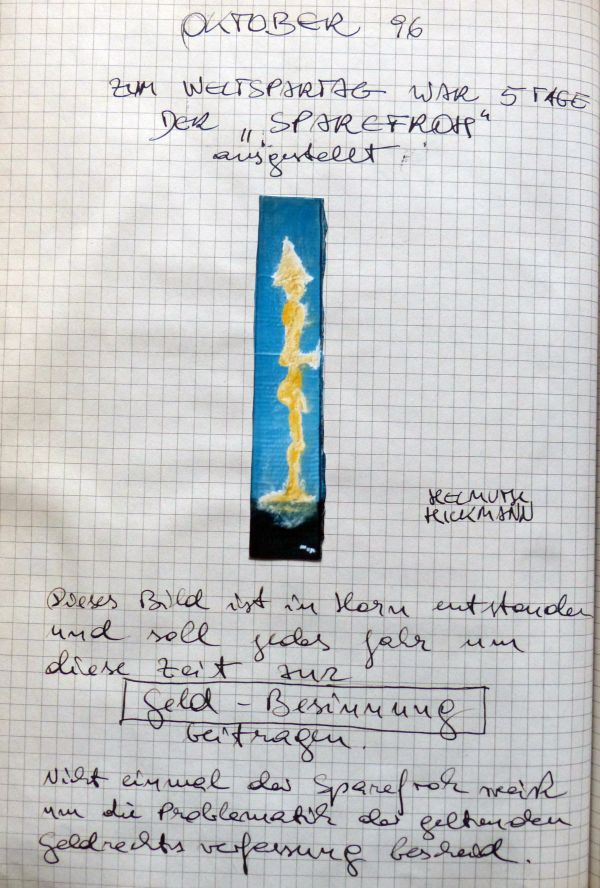 OKTOBER 96
ZUM WELTSPARTAG WAR 5 TAGE
DER „SPAREFROH“
ausgestellt.
HELMUTH
HICKMANN
Dieses Bild ist in Horn entstanden
und soll jedes Jahr um
diese Zeit zur
Geld - Besinnung
beitragen.
Nicht einmal der Sparefroh weiß
um die Problematik der geltenden
Geldrechtsverfassung bescheid.